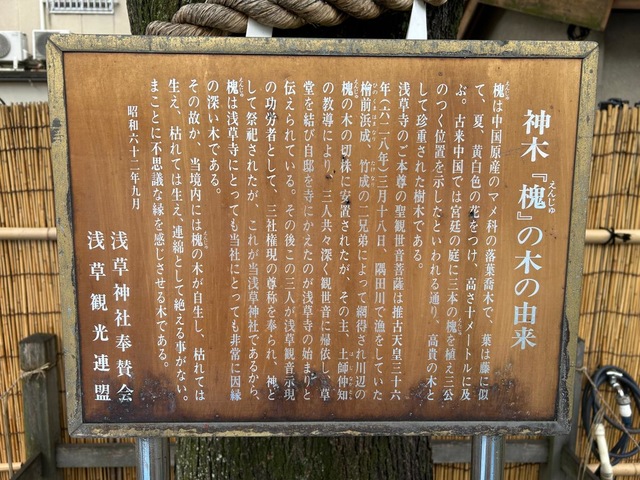 神木『槐』の木の由来
えんじゅ
槐は中国原産のマメ科の落葉喬木で、葉は藤に似
えんじゅ
て、夏、黄白色の花をつけ、高さ十メートルに及
ぶ。古来中国では宮廷の庭に三本の槐を植え三公
えんじゅ
のつく位置を示したといわれる通り、高貴の木と
して珍重された樹木である。
浅草寺のご本尊の聖観世音菩薩は推古天皇三十六
年(六二八年)三月十八日、隅田川で漁をしていた
檜前浜成、竹成の二兄弟によって網得され川辺の
槐の木の切株に安置されたが、その主、土師仲知
えんじゅ
の教導により、三人共々深く観世音に帰依し、草
堂を結び自邸を寺にかえたのが浅草寺の始まりと
伝えられている。その後この三人が浅草観音示現
の功労者として、三社権現の尊称を奉られ、神と
して祭祀されたが、これが当浅草神社であるから、
槐は浅草寺にとっても当社にとっても非常に因縁
えんじゅ
の深い木である。
その故か、当境内には槐の木が自生し、枯れては
えんじゅ
生え、枯れては生え、連綿として絶える事がない。
まことに不思議な縁を感じさせる木である。
昭和六十二年九月
浅草神社奉賛会
浅草観光連盟